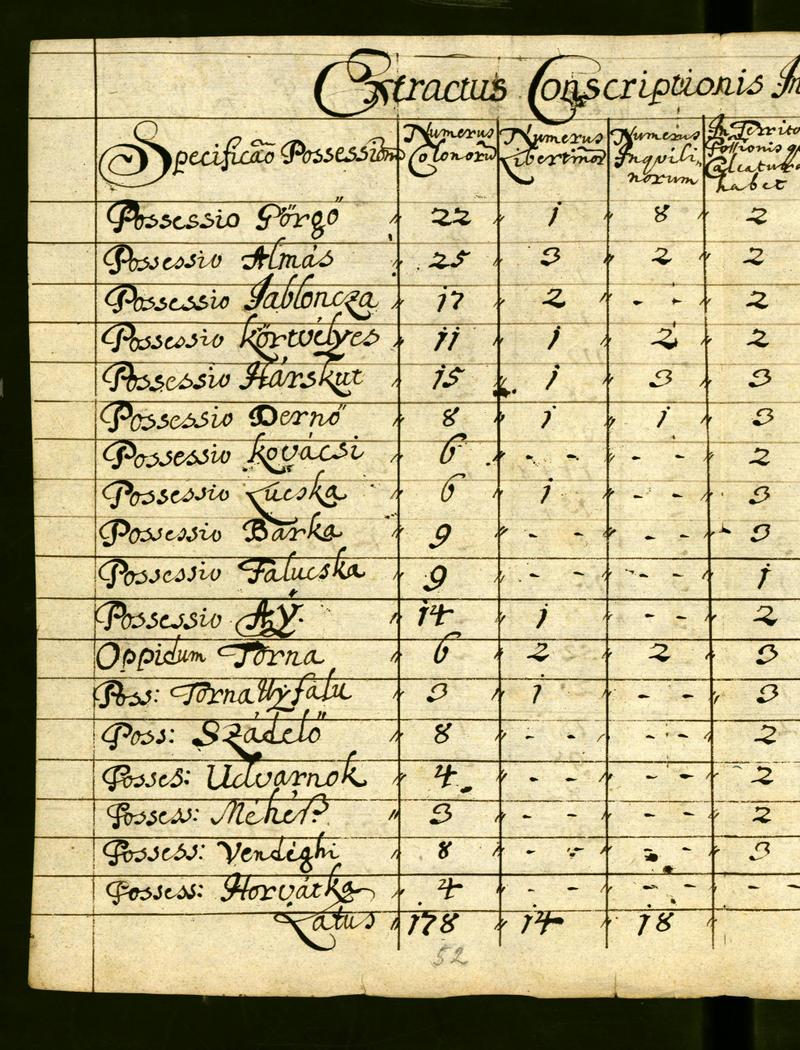 Extractus Conscriptionis In
Specificão Possessionũ Numerus Colonorũ Numerus Libertinorũ Numerus Inquilinorum In Territo Possionis Calcatura habet
Possessio Görgő " 22 " 1 " 8 " 2
Possessio Almás " 25 " 3 " 2 " 2
Possessio Jabloncza " 17 " 2 " - - " 2
Possessio Körtvélyes " 11 " 1 " 2 " 2
Possessio Hárskut " 15 " 1 " 3 " 3
Possessio Dernő " 8 " 1 " 1 " 3
Possessio Kovácsi " 6 " - - " - - " 2
Possessio Lucska " 6 " 1 " - - " 3
Possessio Barka " 9 " - - " - - " 3
Possessio Falucska " 9 " - - " - - " 1
Possessio Aÿ. " 14 " 1 " - - " 2
Oppidum Torna " 6 " 2 " 2 " 3
Poss: Torna Uÿfalu " 3 " 1 " - - " 3
Poss: Szádelő " 8 " - - " - - " 2
Posses: Udvarnok " 4 " - - " - - " 2
Possess: Méhés " 3 " - - " - - " 2
Possess: Vendéghi " 8 " - - " - - " 3
Possess: Horvátka " 4 " - - " - - " - -
Latus " 178 " 14 " 18 "
52